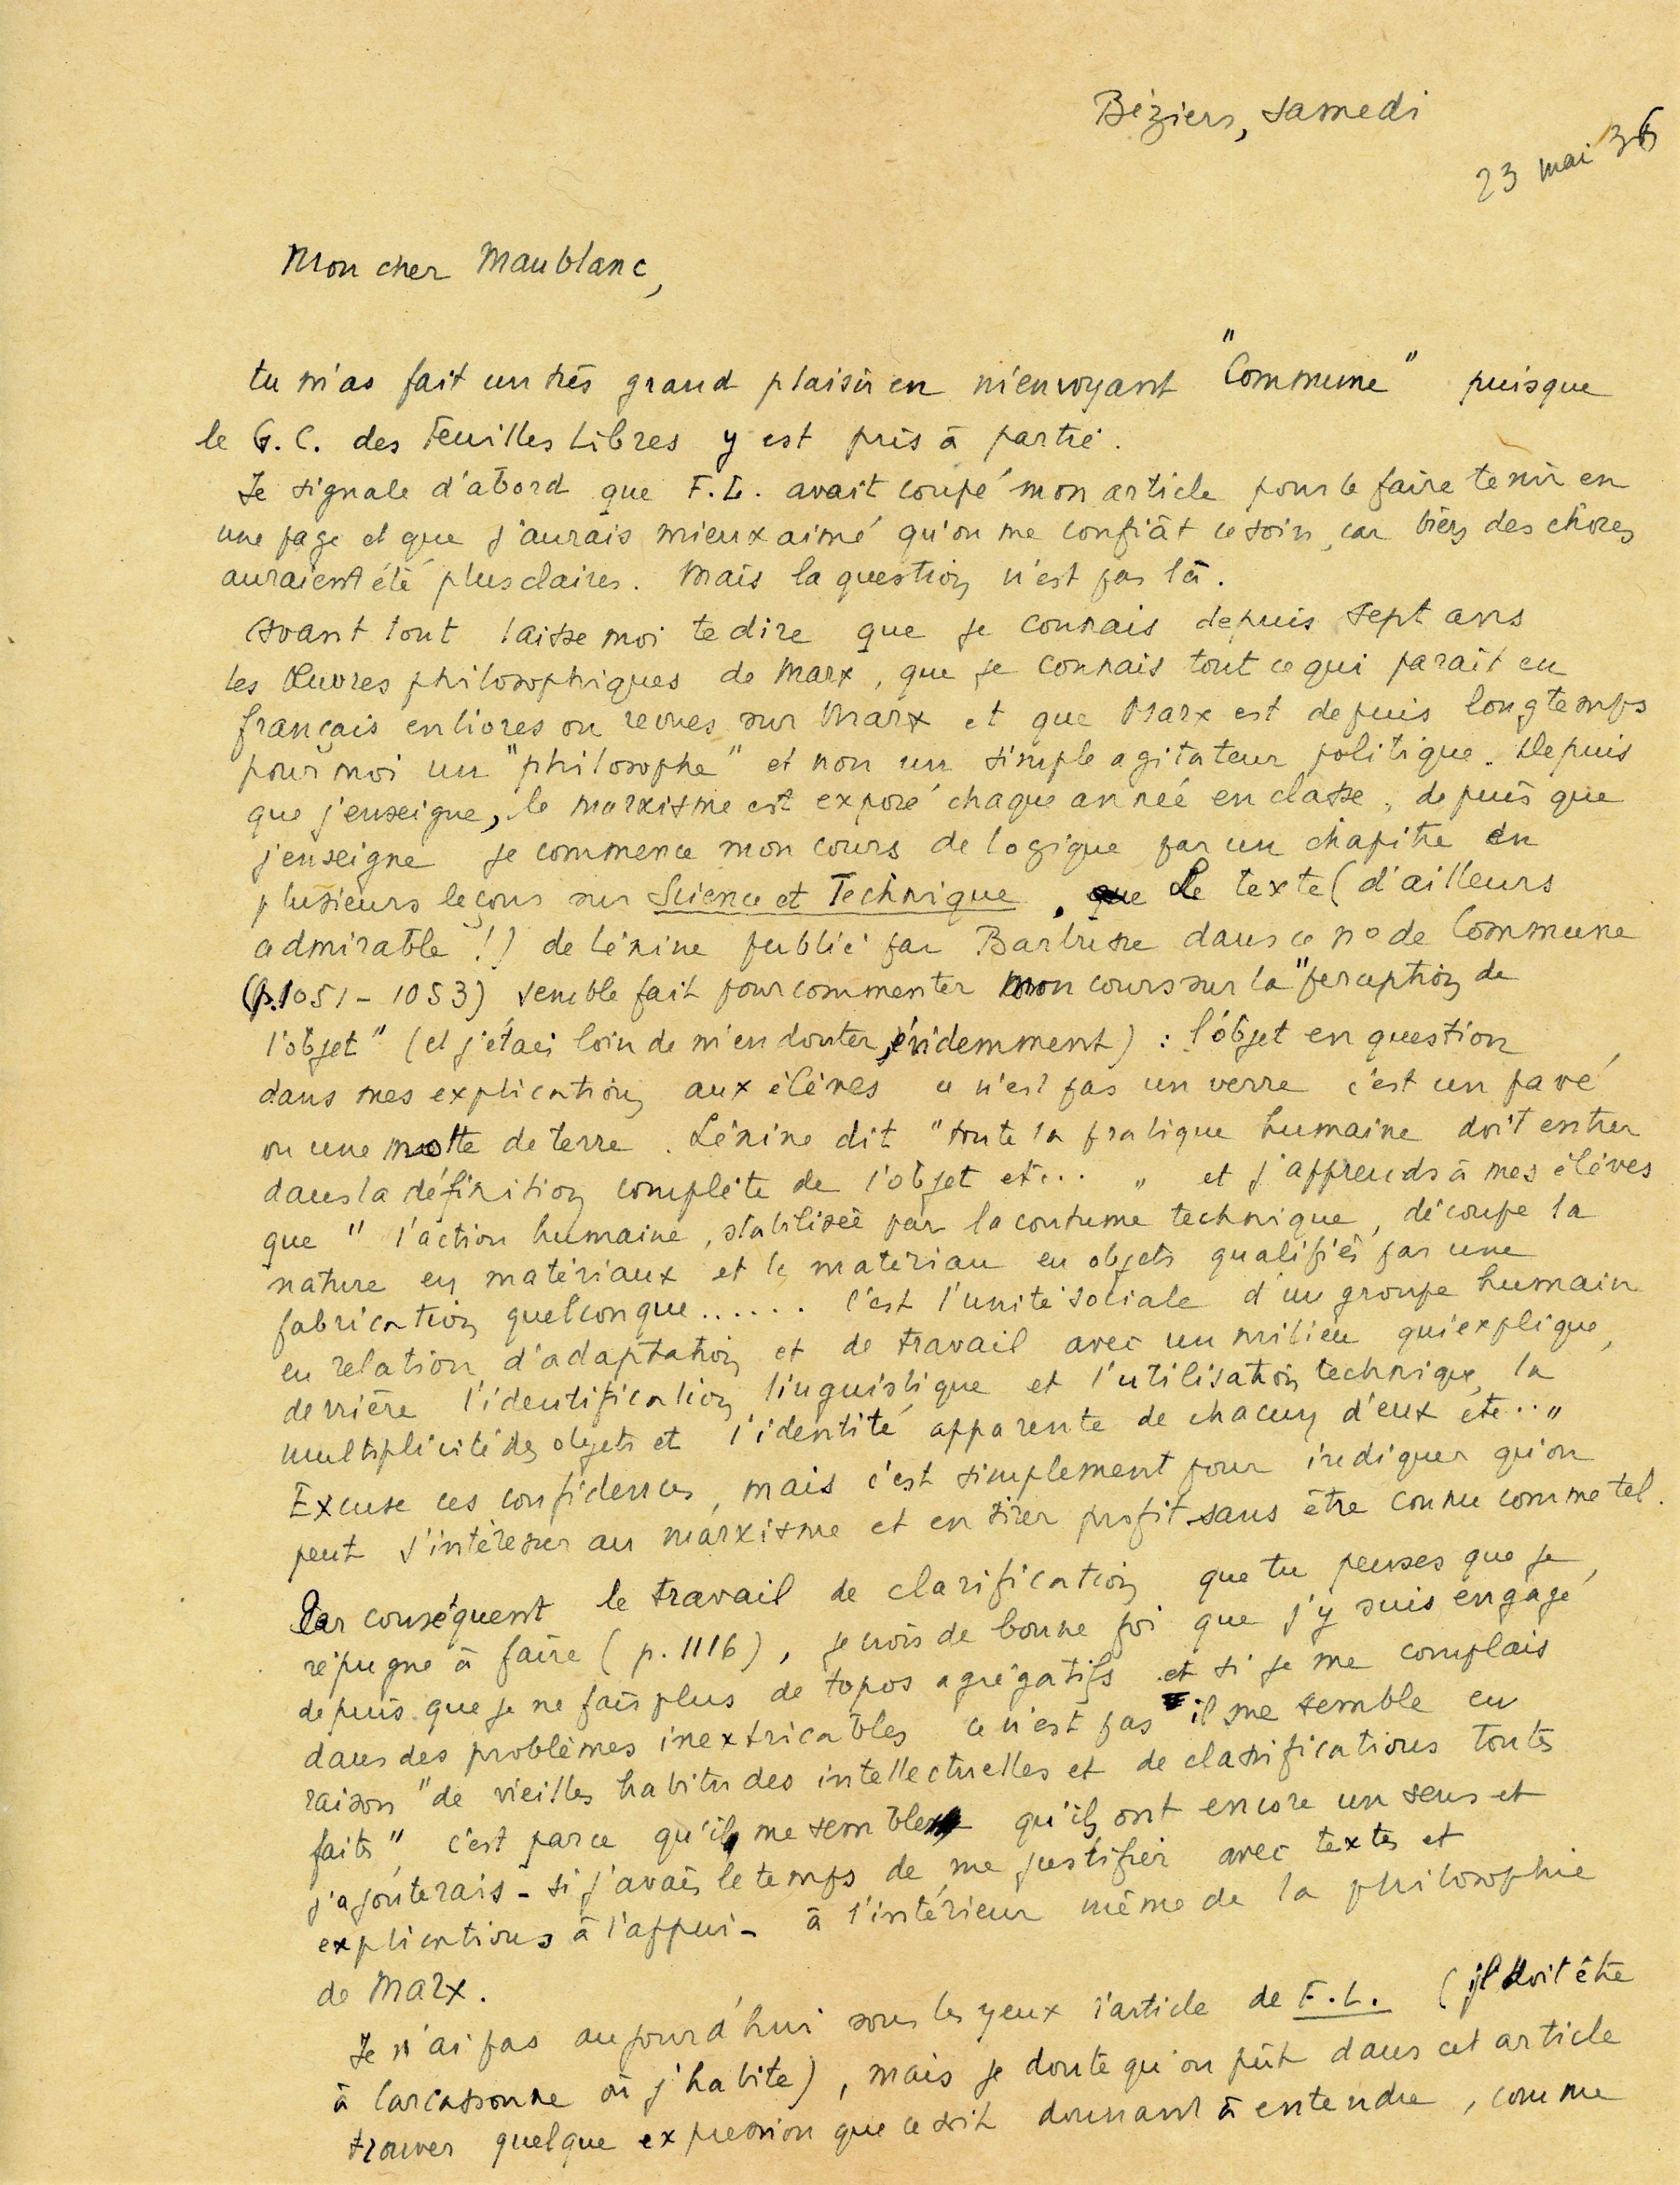 Béziers, samedi
23 mai 36
Mon cher Maublanc,
tu m'as fait un très grand plaisir en m'envoyant "Commune" puisque
le G. C. des Feuilles Libres y est pris à partie.
Je signale d'abord que F. L. avait coupé mon article pour le faire tenir en
une page et que j'aurais mieux aimé qu'on me confiât ce soin, car bien des choses
auraient été plus claires. Mais la question n'est pas là.
Avant tout laisse moi te dire que je connais depuis sept ans
les Œuvres philosophiques de Marx, que je connais tout ce qui parait en
français en livres ou revues sur Marx et que Marx est depuis longtemps
pour moi un "philosophe" et non un simple agitateur politique. Depuis
que j'enseigne, le marxisme est exposé chaque année en classe, depuis que
j'enseigne je commence mon cours de logique par un chapitre en
plusieurs leçons sur Science et Technique. Le texte (d'ailleurs
admirable !) de Lénine publié par Barbusse dans ce n° de Commune
(p. 1051 - 1053) semble fait pour commenter mon cours sur la "perception de
l'objet" (et j'étais loin de m'en douter, évidemment) : l'objet en question
dans mes explications aux élèves ce n'est pas un verre c'est un pavé,
ou une motte de terre. Lénine dit "toute la pratique humaine doit entrer
dans la définition complète de l'objet etc... " et j'apprends à mes élèves
que "l'action humaine, stabilisée par la coutume technique, découpe la
nature en matériaux et le matériau en objets qualifiés par une
fabrication quelconque...... c'est l'unité sociale d'un groupe humain
en relation d'adaptation et de travail avec un milieu qui explique,
derrière l'identification linguistique et l'utilisation technique, la
multiplicité des objets et l'identité apparente de chacun d'eux etc.. "
Excuse ces confidences, mais c'est simplement pour indiquer qu'on
peut s'intéresser au marxisme et en tirer profit sans être connu comme tel.
Par conséquent le travail de clarification que tu penses que je
répugne à faire (p. 1116), je crois de bonne foi que j'y suis engagé
depuis que je ne fais plus de topos agrégatifs et si je me complais
dans des problèmes inextricables ce n'est pas il me semble en
raison "de vieilles habitudes intellectuelles et de classifications toutes
faites", c'est parce qu'il me semble qu'ils ont encore un sens et
j'ajouterais - si j'avais le temps de me justifier avec textes et
explications à l'appui - à l'intérieur même de la philosophie
de Marx.
Je n'ai pas aujourd'hui sous les yeux l'article de F. L. (il doit être
à Carcassonne où j'habite), mais je doute qu'on pût dans cet article
trouver quelque expression que ce soit donnant à entendre, comme